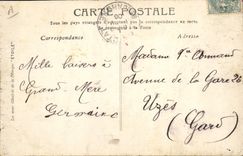 CARTE POSTALE
Tous les pays étrangers n'acceptent pas la correspondance au verso.
Se renseigner à la Poste
Correspondance
Adresse
Mille baisers à
Grand-Mère
Germaine
Madame Vve Armand
Avenue de la Gare 26
Uzès
(Gard)